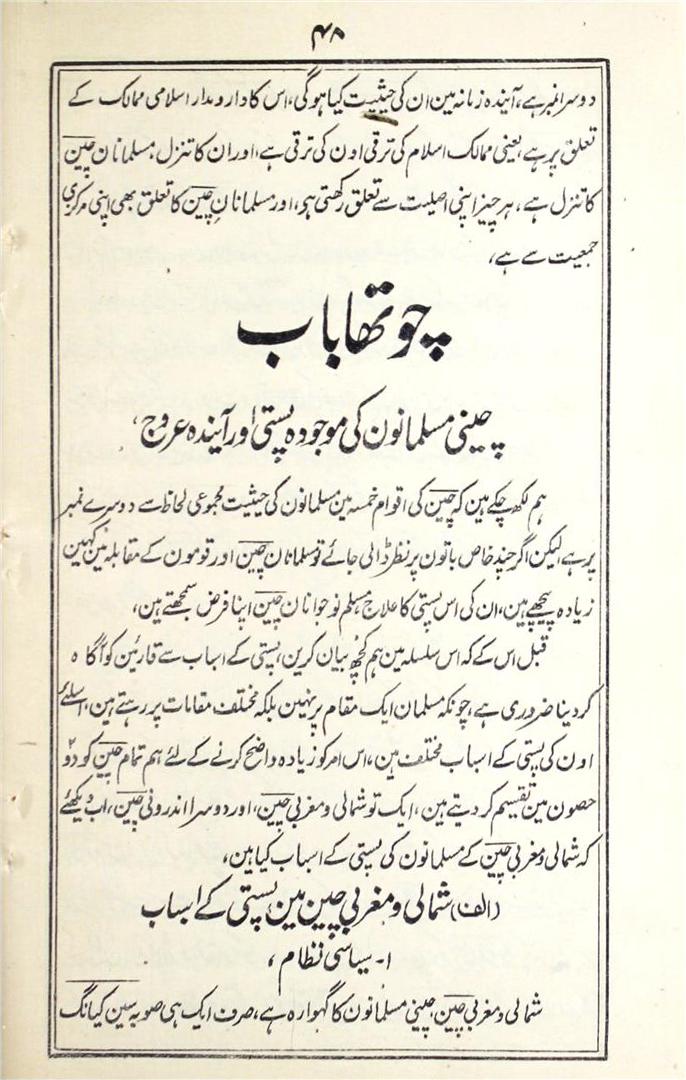 ۴۸
دوسرا نمبر ہے، آیندہ زمانہ مین ان کی حیثیت کیا ہوگی، اس کا دار و مدار اسلامی ممالک کے
تعلق پر ہے، یعنی ممالک اسلام کی ترقی اون کی ترقی ہے، اور ان کا تنزل، مسلمانان چین
کا تنزل ہے، ہر چیز اپنی اصلیت سے تعلق رکھتی ہی، اور مسلمانانِ چین کا تعلق بھی اپنی مرکزی
جمعیت سے ہے،
چوتھا باب
چینی مسلمانون کی موجودہ پستی اور آیندہ عروج،
ہم لکھ چکے ہین کہ چین کی اقوام خمسہ مین مسلمانون کی حیثیت مجموعی لحاظ سے دوسرے نمبر
پر ہے لیکن اگر چند خاص باتون پر نظر ڈالی جائے تو مسلمانان چین اور قومون کے مقابلہ مین کہین
زیادہ پیچھے ہین، ان کی اس پستی کا علاج مسلم نوجوانان چین اپنا فرض سمجھتے ہین،
قبل اس کے کہ اس سلسلہ مین ہم کچھ بیان کرین، پستی کے اسباب سے قارئین کو آگاہ
کر دینا ضروری ہے، چونکہ مسلمان ایک مقام پر نہین بلکہ مختلف مقامات پر رہتے ہین، اسلئے
اون کی پستی کے اسباب مختلف ہین، اس امر کو زیادہ واضح کرنے کے لئے ہم تمام چین کو دو
حصون مین تقسیم کر دیتے ہین، ایک تو شمالی و مغربی چین، اور دوسرا اندرونی چین، اب دیکھئے
کہ شمالی و مغربی چین کے مسلمانون کی پستی کے اسباب کیا ہین،
(الف) شمالی و مغربی چین مین پستی کے اسباب
۱- سیاسی نظام،
شمالی و مغربی چین، چینی مسلمانون کا گہوارہ ہے، صرف ایک ہی صوبہ سین کیانگ